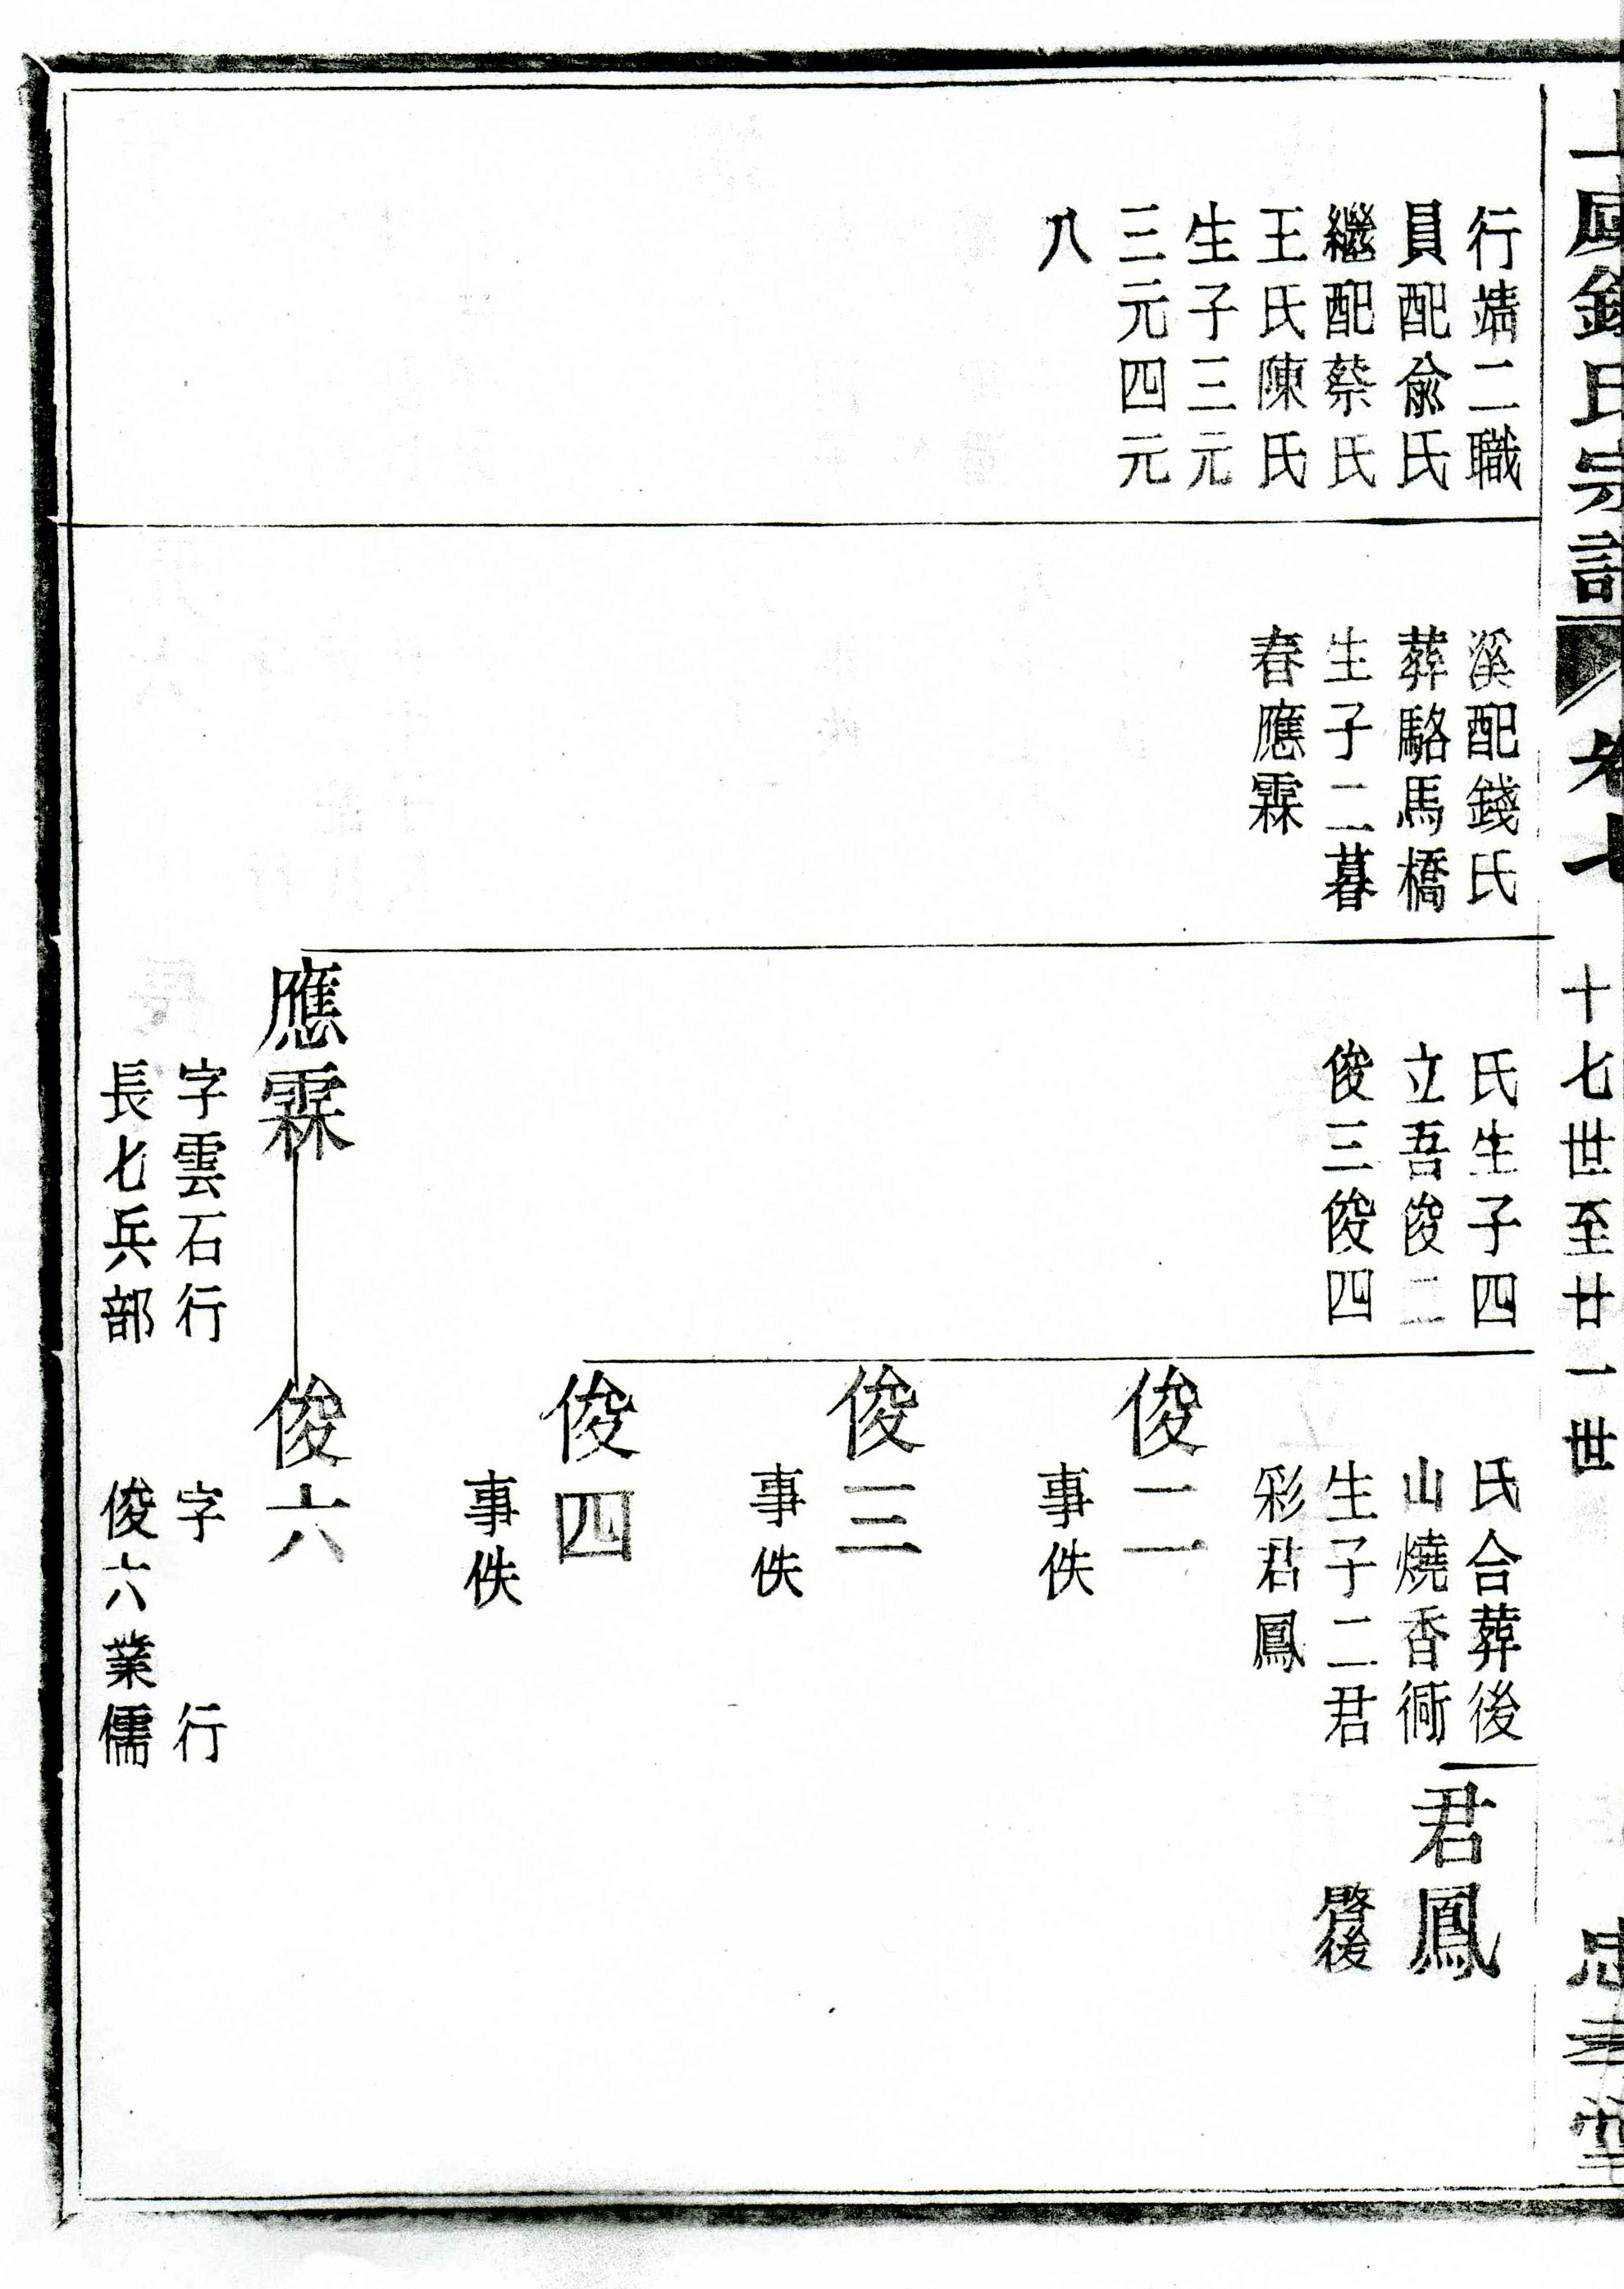 氏宗譜
卷七
十七世至廿一世
忠孝堂
行靖二職
員配俞氏
繼配蔡氏
王氏陳氏
生子三元
三元四元
八
溪配錢氏
葬駱馬橋
生子二暮
春應霖
氏生子四
立吾俊二
俊三俊四
應霖
字雲石行
長七兵部
氏合葬後
山燒香衕
生子二君
彩君鳳
俊二
事佚
俊三
事佚
俊四
事佚
俊六
字 行
俊六業儒
君鳳
啓後